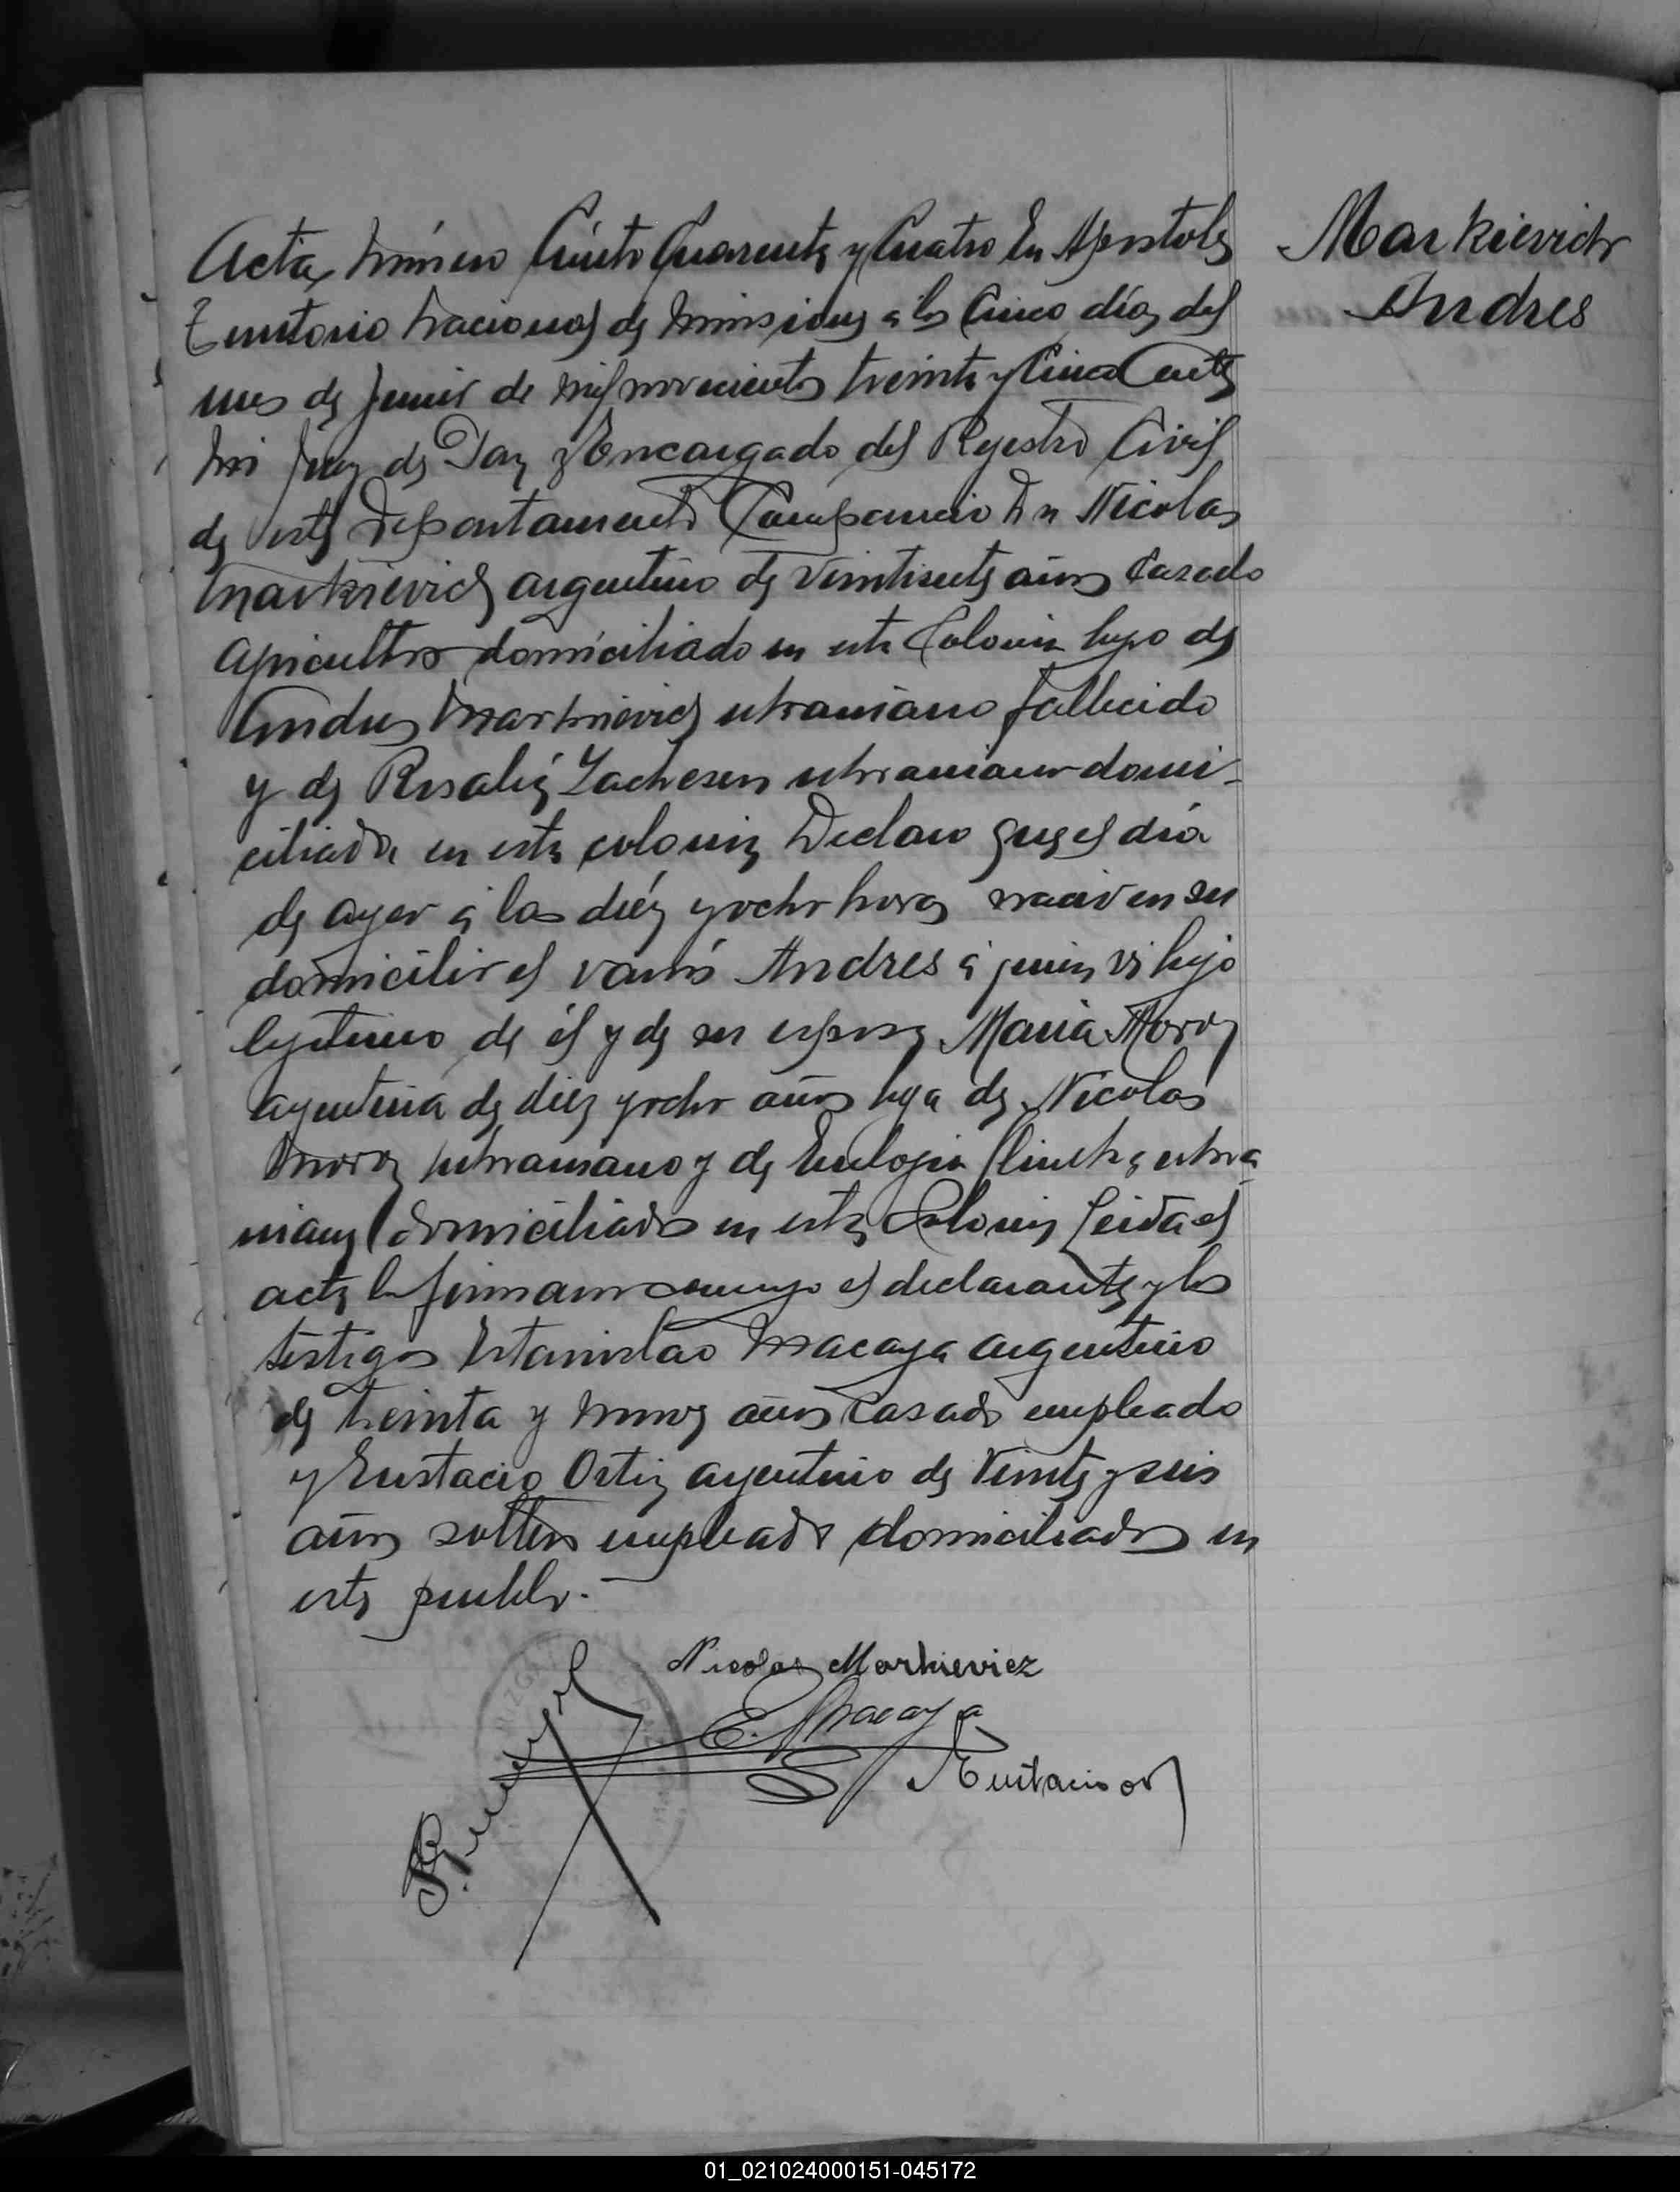 Acta número Ciento Cuarenta y Cuatro En Apostoles
Territorio Nacional de Misiones a los Cinco días del
mes de Junio de mil novecientos treinta y Cinco Ante
mi Juez de Paz y Encargado del Rejistro Civil
de este Departamento Compareció Dn Nicolas
Markievich argentino de veintisiete años Casado
Agricultor domiciliado en esta Colonia hijo de
Andres Markievich ukraniano fallecido
y de Rosalía ukraniana domi-
ciliada en esta colonia Declaro que el día
de ayer a las diéz y ocho horas nació en su
domicilio el varón Andres a quien vi hijo
lejitimo de él y de su esposa Maria Moroz
argentina de diez y ocho años hija de Nicolas
Moroz ukraniano y de Eulogia ukra
niana domiciliados en esta Colonia Leida el
acta la firmaron conmigo el declarante y los
testigos Estanislao Macaya argentino
de treinta y nueve años Casado empleado
y Eustacio Ortiz argentino de Veinte y seis
años soltero empleado domiciliados en
este pueblo.-
Markievich
Andres
Nicolas Markieviez
E. Macaya
Eustacio or
JUZGA
PAZ
01_021024000151-045172